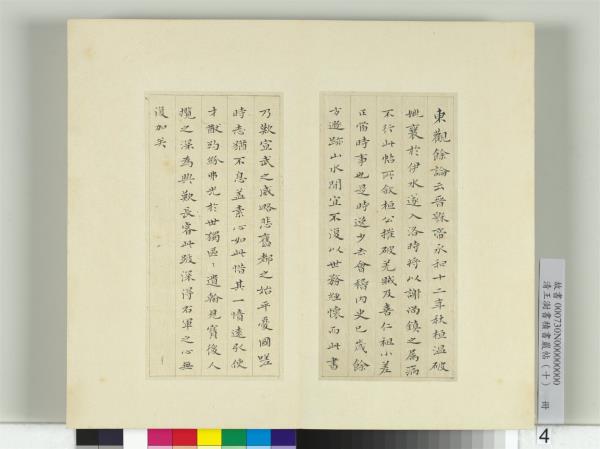 東觀餘論云晉穆帝永和十二年秋桓溫破
姚襄於伊水遂入洛時將以謝尚鎮之屬病
不行此帖所敘桓公摧破羌賊及喜仁祖小差
正當時事也是時逸少去會稽內史已歲餘
方遊跡山水間宜不復以世務經懷而此書
乃歎宣武之威略悲舊都之始平憂國嗟
時志猶不息蓋素心如此惜其一憤遠引使
才猷約紛弗光於世獨區々遺翰見寶後人
攬之深為興歎長睿此跋深得右軍之心無
復加矣
故書000730N000000000
清王澍書積書巖帖（十） 冊
4